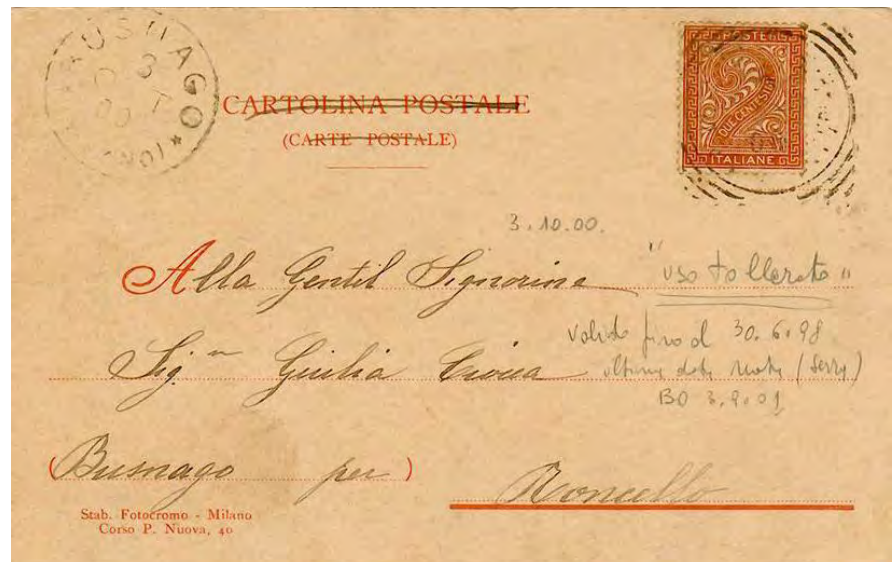 BUSNAGO
3
OT
00
POSTE
DUE CENTESIMI
2
ITALIANE
CARTOLINA POSTALE
(CARTE POSTALE)
3.10.00.
Alla Gentil Signorina
"uso tollerato"
Sigⁿᵃ Giulia
valido fino al 30.6.98
ultima data nota (Serra)
BO 3.9.01
(Busnago per)
Roncello
Stab. Fotocromo - Milano
Corso P. Nuova, 40